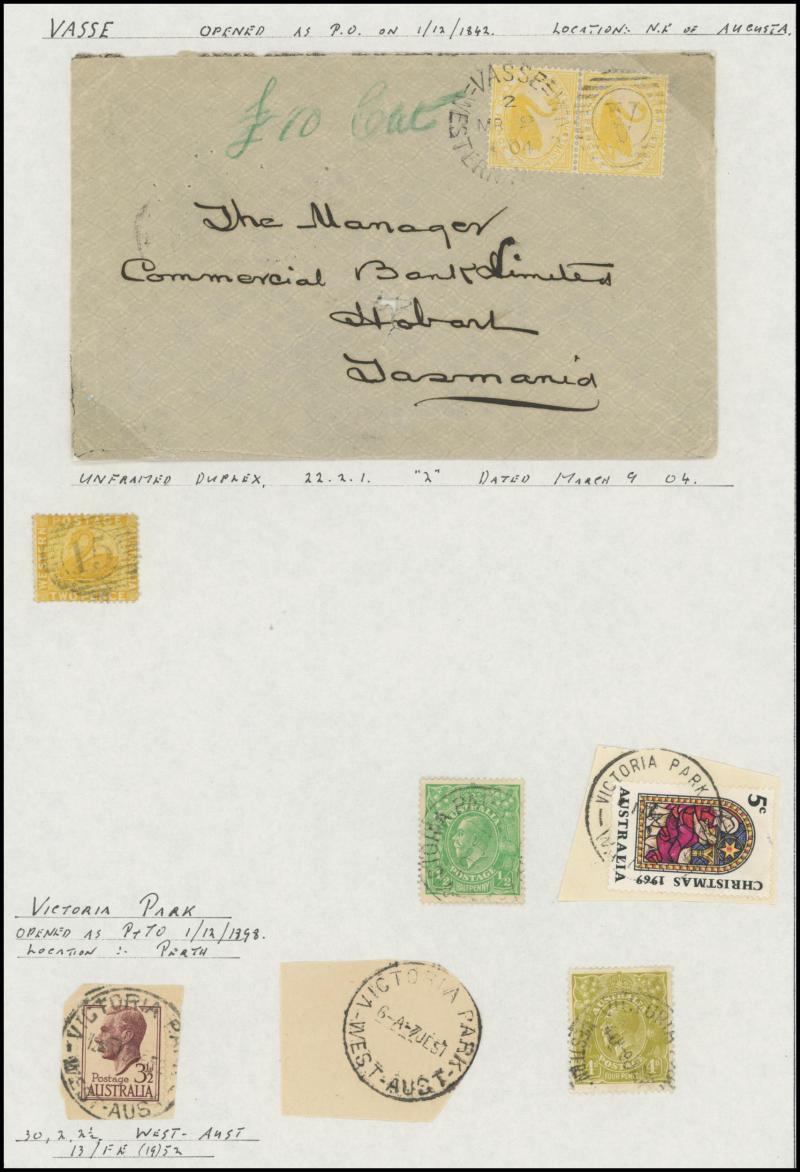 VASSE OPENED AS P.O. ON 1/12/1842. LOCATION:- N.E OF AUGUSTA.
£10 Cat
VASSE - W
2
MR 9
04
WESTERN
The Manager
Commercial Bank Limited
Hobart
Tasmania
UNFRAMED DUPLEX. 22.2.1. "2" DATED MARCH 9 04.
WESTERN POSTAGE
15
TWO PENCE
VICTORIA PARK
AUSTRALIA
POSTAGE
1/2 HALFPENNY 1/2
VICTORIA PARK
5c
AUSTRALIA
CHRISTMAS 1969
VICTORIA PARK
OPENED AS P+TO 1/12/1898.
LOCATION :- PERTH
VICTORIA PARK
3½
Postage
AUSTRALIA
WEST-AUS
VICTORIA PARK
6-A-7JE57
WEST-AUST-
VICTORIA
FOUR PENCE
30, 2, 2½ WEST-AUST
13/FE (19)52